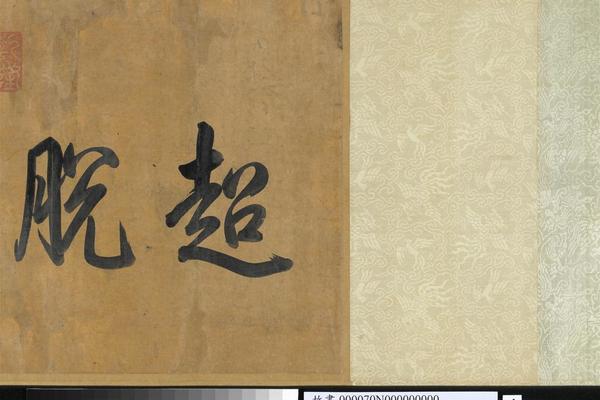 超脫
故畫 000070N000000000